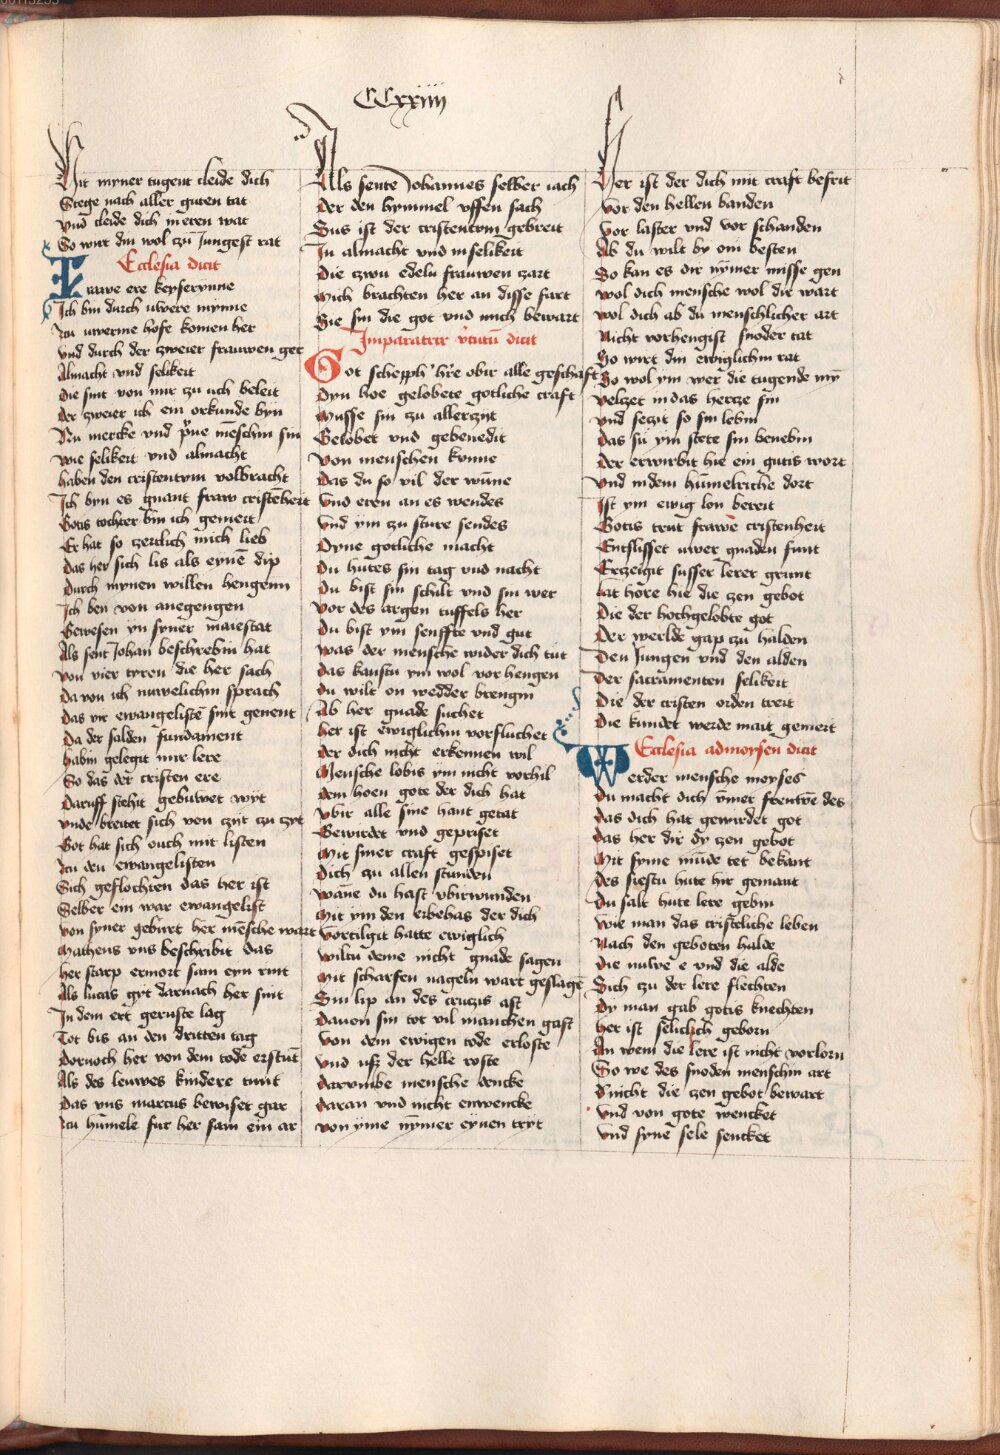 CCxxiiii
Mit myner tugent cleide dich
Stege nach aller guten tat
vnd cleide dich in eren wat
So wirt din wol zu Jungest rat
Ecclesia dicit
Frawe ere keyserynne
Ich bin durch uwere mynne
zcu uwerme hofe komen her
vnd durch der zweier frauwen ger
Almacht vnd selikeit
die sint von mir zu uch beleit
der zweier ich ein orkunde byn
Nu mercke vnd pͮue mēschin sin
wie selikeit vnd almacht
haben den cristentum volbracht
Ich byn es gnant fraw cristēheit
Gotis tochter bin ich gemeit
Er hat so zertlich mich lieb
das her sich lis als eynē dip
durch mynen willen hengenn
Ich ben von anegengen
Gewesen yn syner maiestat
Als sent Johan beschrebin hat
von vier tyren die her sach
da von ich nuwelichin sprach
das vir ewangelistē sint genent
Da der salden fundament
habin gelegit mir lere
So das der cristen ere
daruff stehit gebuwet wyt
vnde breitet sich von czyt zu czyt
Got hat sich ouch mit listen
zcu den ewangelisten
Sich geflochten das her ist
Selber ein war ewangelist
von syner geburt her mēsche wart
matheus vns beschribit das
her starp ermort sam eyn rint
Als lucas gyt darnach her sint
In dem ert geruste lag
Tot bis an den dritten tag
dornoch her von dem tode erstūt
Als des leuwes kindere tunt
das vns marcus bewiset gar
zcu hūmele fur her sam ein ar
Als sente Johannes selber iach
der den hymmel vffen sach
Sus ist der cristentum gebreit
In almacht vnd in selikeit
die zwu edeln frauwen zart
mich brachten her an disse fart
Sie sin die got vnd mich bewart
Imparatrix v̾tutū dicit
Got schepph̾ h̾re obir alle geschaft
dyn hoe gelobete gotliche craft
musse sin zu allerzyt
Gelobet vnd gebenedit
von menschen konne
das du so vil der wūne
vnd eren an es wendes
vnd ym zu sture sendes
Dyne gotliche macht
du hutes sin tag vnd nacht
du bist sin schilt vnd sin wer
vor des argen tuffels her
du bist ym senffte vnd gut
was der mensche wider dich tut
das kanstu ym wol vor hengen
du wilt on wedder brengin
Ab her gnade suchet
her ist ewiglichin vorfluchet
der dich nicht erkennen wil
Mensche lobis ym nicht vorhil
dem hoen gote der dich hat
vbir alle sine hant getat
Gewirdet vnd gepriset
Mit siner craft gespiset
dich zu allen stunden
wāne du hast vbirwunden
Mit ym den erbehas der dich
vortilgit hatte ewiglich
wiltu deme nicht gnade sagen
Mit scharfen nageln wart geslagē
Sin lip an des cruczis ast
dauon sin tot vil manchen gast
von dem ewigen tode erloste
vnd usz der helle roste
darumbe mensche dencke
daran vnd nicht enwencke
von yme nȳmer eynen tryt
Her ist der dich mit craft befrit
vor den hellen banden
vor laster vnd vor schanden
Ab du wilt by om besten
So kan es dir nȳmer misse gen
wol dich mensche wol dir wart
wol dich ab du menschlicher art
Nicht vorhengist snoder tat
So wirt din ewiglichin rat
So wol ym wer die tugende mȳ
velczet in das hercze sin
vnd seczt so sin lebin
das sij ym stete sin benebin
der erwirbit hie ein gutis wort
vnd in dem hūmelriche dort
Ist ym ewig lon bereit
Gotis trut frawē cristenheit
Entslisset uwer gnaden funt
Erczeigit susser lerer grunt
lat hore hie die zen gebot
Die der hochgelobte got
Der werlde gap zu halden
Den Jungen vnd den alden
der sacramenten selikeit
die der cristen orden treit
die kundet werde mait gemeit
Ecclesia ad moysen dicit
Werder mensche moyses
du macht dich ȳmer freuwē des
das dich hat gewirdet got
das her dir dy zen gebot
Mit syme mūde tet bekant
des siestu hute hir gemant
du salt hute lere gebin
wie man das cristeliche leben
Nach den geboten halde
die nuwe e vnd die alde
Sich zu der lere flechten
dy man gab gotis knechten
her ist selichlich geborn
An wem die lere ist nicht vorlorn
So we des snoden menschin art
d nicht die zen gebot bewart
vnd von gote wencket
vnd synē sele sencket